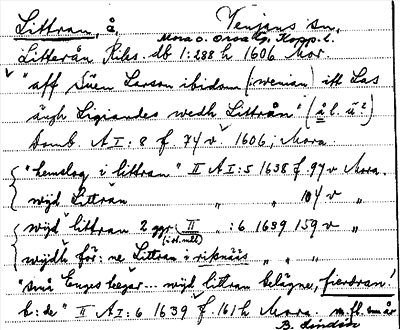 Littran, å, Venjans sn,
Mora o. Orsa tg. Kopp. l.
Litterån Riks. db 1:288 h 1606 Mor.
"aff Suen Larson ibidem (: wenian) itt Las
ängh Ligiandes wedh Littrån" (å l. ä?)
Domb. A I: 8 f 74 v 1606; Mora
"hemslog i littran" II A I: 5 1638 f. 97 v Mora.
wijd Littrån " " 104 v "
wijd littran 2 ggr II " : 6 1639 159 v "
wijdh för: ne Littran i " " "
"små Enges ... wijd littran belägne, fierdran!
b: de" II A I: 6 1639 f. 161 h Mora. m.fl. små år
B. Lindén